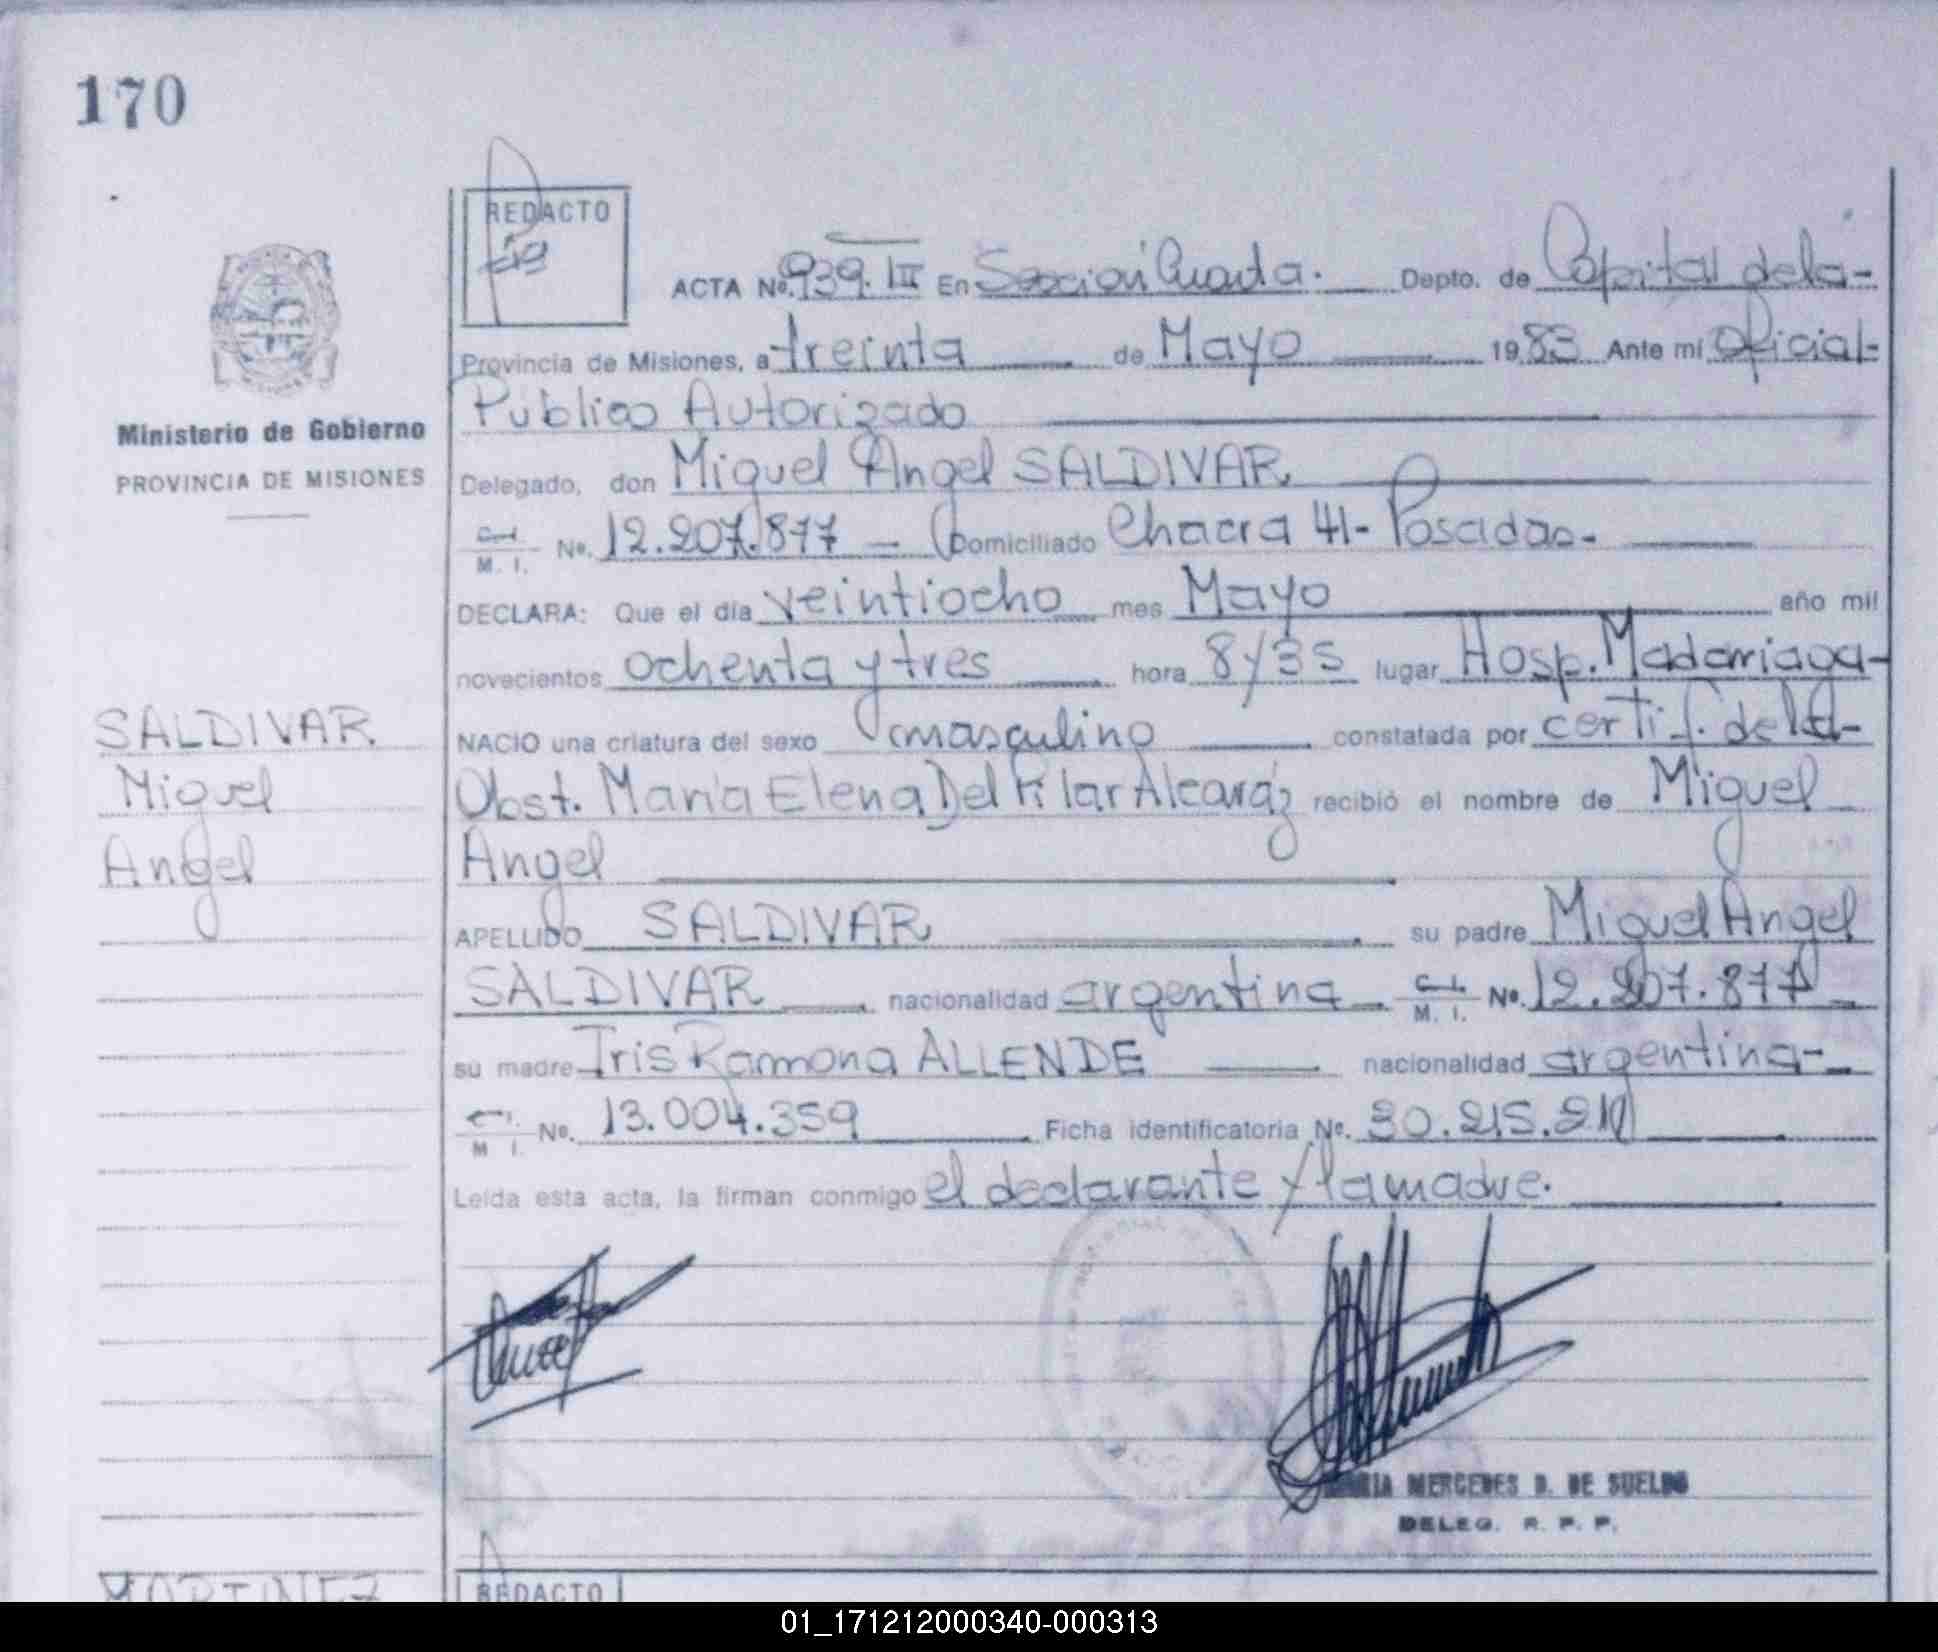 170
REDACTO
ACTA Nº 939. III En Sección Cuarta. Depto. de Capital de la-
Provincia de Misiones, a treinta de Mayo 1983 Ante mi Oficial-
Público Autorizado
Ministerio de Gobierno
PROVINCIA DE MISIONES
Delegado, don Miguel Angel SALDIVAR
C. I.
M. I. Nº. 12.207.877 Domiciliado Chacra 41- Posadas-
DECLARA: Que el día veintiocho mes Mayo año mil
novecientos ochenta y tres hora 8 y 35 lugar Hosp. Madariaga-
SALDIVAR
Miguel
Angel
NACIO una criatura del sexo masculino constatada por certif. de la-
Obst. María Elena Del Pilar Alcaráz recibió el nombre de Miguel
Angel
APELLIDO SALDIVAR su padre Miguel Angel
SALDIVAR nacionalidad argentina C. I.
M. I. Nº. 12.207.877
su madre Iris Ramona ALLENDE nacionalidad argentina-
M I. Nº. 13.004.359 Ficha identificatoria Nº. 30.215.211
Leída esta acta, la firman conmigo el declarante y la madre.
MERCEDES D. DE SUELDO
DELEG. R. P. P.
MARTINEZ
REDACTO
01_171212000340-000313